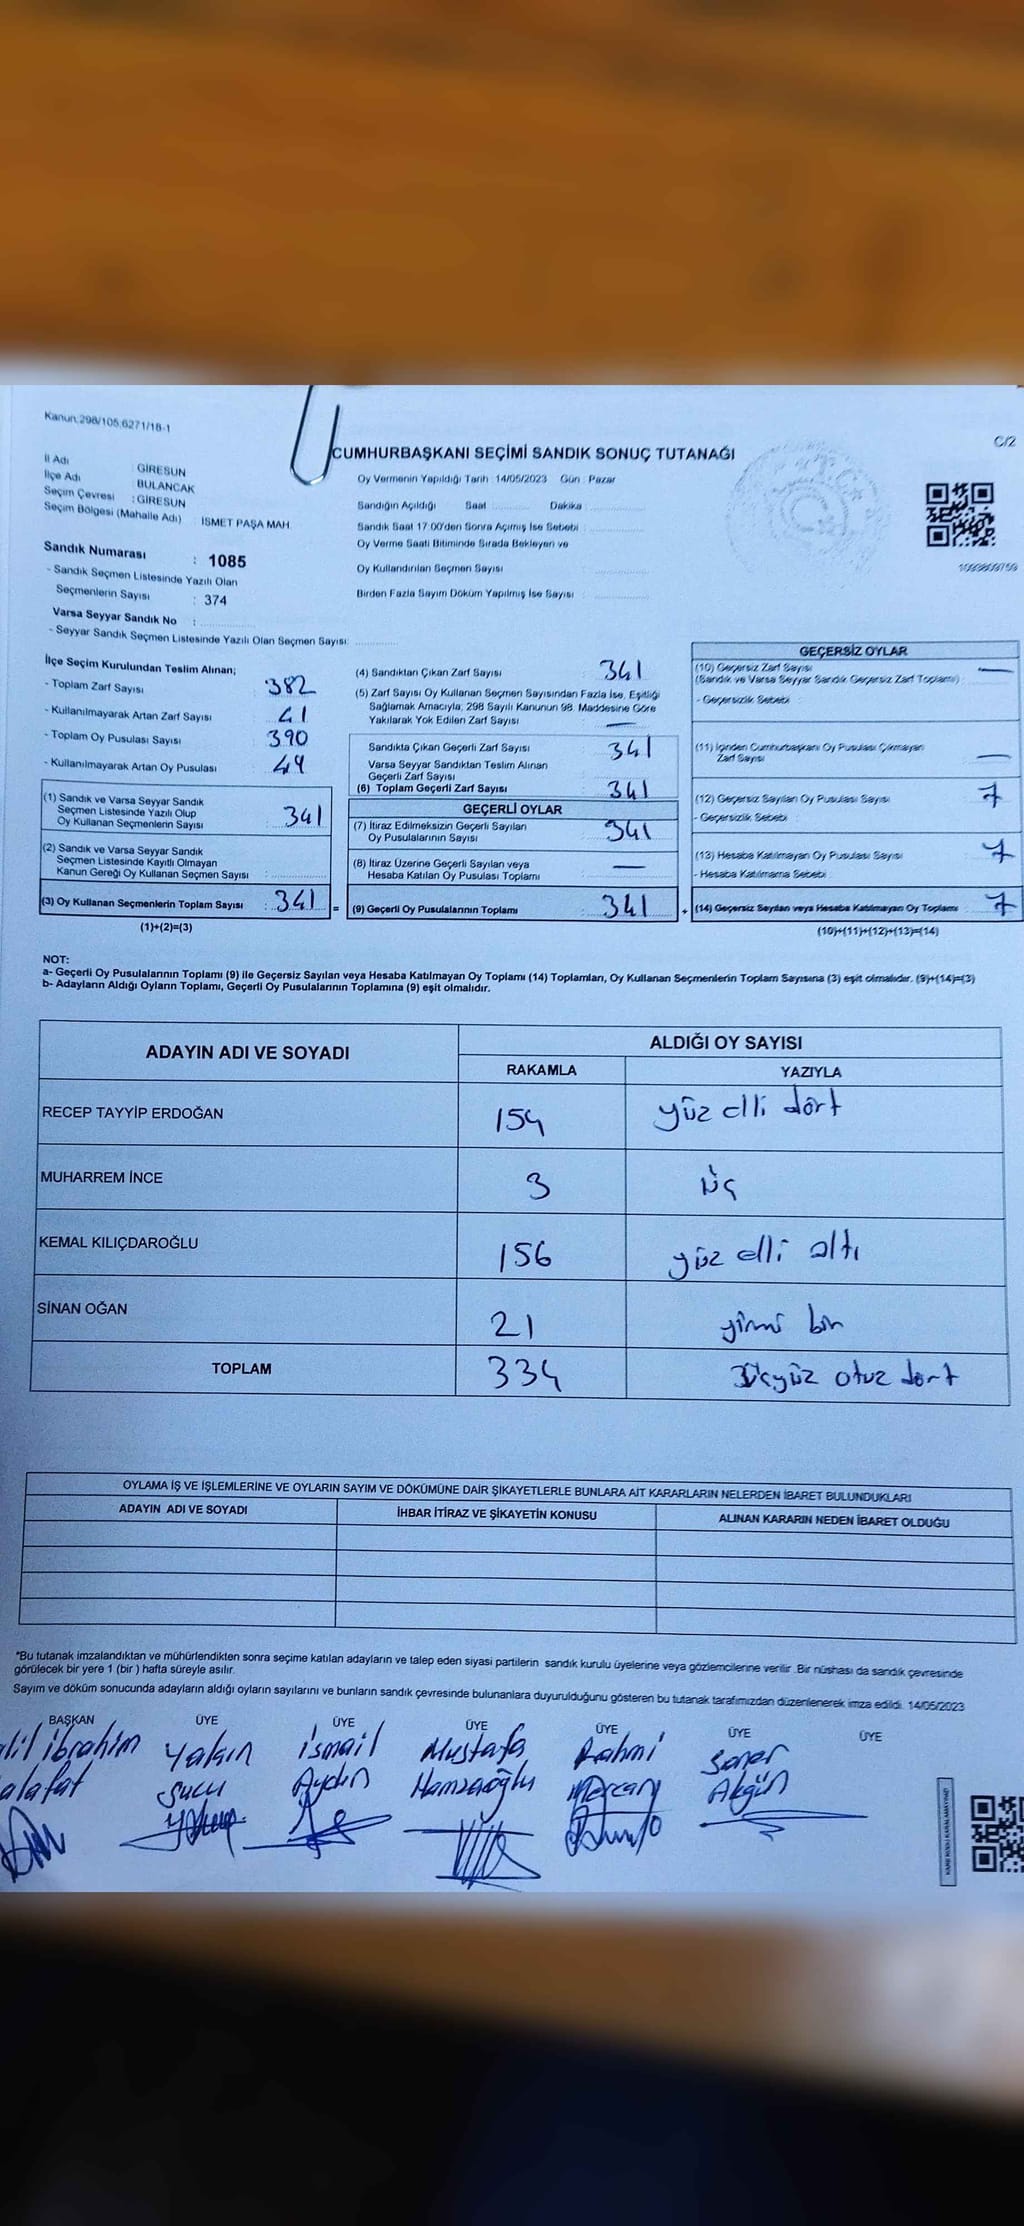 Kanun:298/105,6271/18-1
C/2
CUMHURBAŞKANI SEÇİMİ SANDIK SONUÇ TUTANAĞI
İl Adı : GİRESUN
İlçe Adı : BULANCAK
Seçim Çevresi : GİRESUN
Seçim Bölgesi (Mahalle Adı) : İSMET PAŞA MAH.
Sandık Numarası : 1085
- Sandık Seçmen Listesinde Yazılı Olan
Seçmenlerin Sayısı : 374
Varsa Seyyar Sandık No :
- Seyyar Sandık Seçmen Listesinde Yazılı Olan Seçmen Sayısı:
Oy Vermenin Yapıldığı Tarih : 14/05/2023 Gün : Pazar
Sandığın Açıldığı Saat Dakika :
Sandık Saat 17:00'den Sonra Açımış İse Sebebi :
Oy Verme Saati Bitiminde Sırada Bekleyen ve
Oy Kullandırılan Seçmen Sayısı
Birden Fazla Sayım Döküm Yapılmış İse Sayısı :
1093809759
İlçe Seçim Kurulundan Teslim Alınan;
- Toplam Zarf Sayısı : 382
- Kullanılmayarak Artan Zarf Sayısı : 41
- Toplam Oy Pusulası Sayısı : 390
- Kullanılmayarak Artan Oy Pusulası : 49
(1) Sandık ve Varsa Seyyar Sandık
Seçmen Listesinde Yazılı Olup
Oy Kullanan Seçmenlerin Sayısı : 341
(2) Sandık ve Varsa Seyyar Sandık
Seçmen Listesinde Kayıtlı Olmayan
Kanun Gereği Oy Kullanan Seçmen Sayısı :
(3) Oy Kullanan Seçmenlerin Toplam Sayısı : 341 =
(1)+(2)=(3)
(4) Sandıktan Çıkan Zarf Sayısı : 341
(5) Zarf Sayısı Oy Kullanan Seçmen Sayısından Fazla İse, Eşitliği
Sağlamak Amacıyla; 298 Sayılı Kanunun 98. Maddesine Göre
Yakılarak Yok Edilen Zarf Sayısı : —
Sandıkta Çıkan Geçerli Zarf Sayısı : 341
Varsa Seyyar Sandıktan Teslim Alınan
Geçerli Zarf Sayısı
(6) Toplam Geçerli Zarf Sayısı : 341
GEÇERLİ OYLAR
(7) İtiraz Edilmeksizin Geçerli Sayılan
Oy Pusulalarının Sayısı : 341
(8) İtiraz Üzerine Geçerli Sayılan veya
Hesaba Katılan Oy Pusulası Toplamı : —
(9) Geçerli Oy Pusulalarının Toplamı : 341 +
GEÇERSİZ OYLAR
(10) Geçersiz Zarf Sayısı —
(Sandık ve Varsa Seyyar Sandık Geçersiz Zarf Toplamı) :
- Geçersizlik Sebebi
(11) İçinden Cumhurbaşkanı Oy Pusulası Çıkmayan
Zarf Sayısı —
(12) Geçersiz Sayılan Oy Pusulası Sayısı 7
- Geçersizlik Sebebi
(13) Hesaba Katılmayan Oy Pusulası Sayısı 7
- Hesaba Katılmama Sebebi
(14) Geçersiz Sayılan veya Hesaba Katılmayan Oy Toplamı 7
(10)+(11)+(12)+(13)=(14)
NOT:
a- Geçerli Oy Pusulalarının Toplamı (9) ile Geçersiz Sayılan veya Hesaba Katılmayan Oy Toplamı (14) Toplamları, Oy Kullanan Seçmenlerin Toplam Sayısına (3) eşit olmalıdır. (9)+(14)=(3)
b- Adayların Aldığı Oyların Toplamı, Geçerli Oy Pusulalarının Toplamına (9) eşit olmalıdır.
ADAYIN ADI VE SOYADI ALDIĞI OY SAYISI
RAKAMLA YAZIYLA
RECEP TAYYİP ERDOĞAN 154 yüz elli dört
MUHARREM İNCE 3 üç
KEMAL KILIÇDAROĞLU 156 yüz elli altı
SİNAN OĞAN 21 yirmi bir
TOPLAM 334 üçyüz otuz dört
OYLAMA İŞ VE İŞLEMLERİNE VE OYLARIN SAYIM VE DÖKÜMÜNE DAİR ŞİKAYETLERLE BUNLARA AİT KARARLARIN NELERDEN İBARET BULUNDUKLARI
ADAYIN ADI VE SOYADI İHBAR İTİRAZ VE ŞİKAYETİN KONUSU ALINAN KARARIN NEDEN İBARET OLDUĞU
*Bu tutanak imzalandıktan ve mühürlendikten sonra seçime katılan adayların ve talep eden siyasi partilerin sandık kurulu üyelerine veya gözlemcilerine verilir. Bir nüshası da sandık çevresinde
görülecek bir yere 1 (bir ) hafta süreyle asılır.
Sayım ve döküm sonucunda adayların aldığı oyların sayılarını ve bunların sandık çevresinde bulunanlara duyurulduğunu gösteren bu tutanak tarafımızdan düzenlenerek imza edildi. 14/05/2023
BAŞKAN ÜYE ÜYE ÜYE ÜYE ÜYE ÜYE
alil ibrahim Yalçın ismail Mustafa Rahmi Soner
alafat Sucu Aydın Hamzaoğlu Mercan Akgün